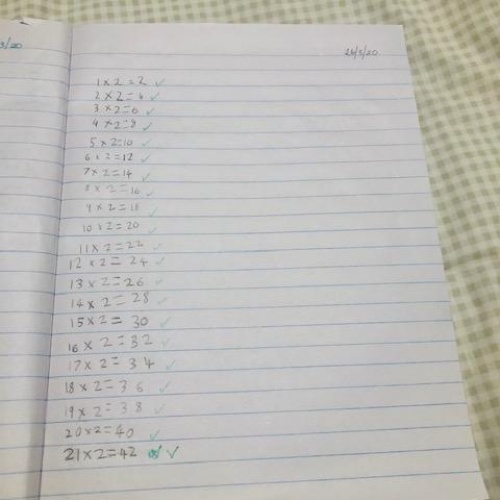 3/20
26/5/20
1 x 2 = 2 ✓
2 x 2 = 4 ✓
3 x 2 = 6 ✓
4 x 2 = 8 ✓
5 x 2 = 10 ✓
6 x 2 = 12 ✓
7 x 2 = 14 ✓
8 x 2 = 16 ✓
9 x 2 = 18 ✓
10 x 2 = 20 ✓
11 x 2 = 22 ✓
12 x 2 = 24 ✓
13 x 2 = 26 ✓
14 x 2 = 28 ✓
15 x 2 = 30 ✓
16 x 2 = 32 ✓
17 x 2 = 34 ✓
18 x 2 = 36 ✓
19 x 2 = 38 ✓
20 x 2 = 40 ✓
21 x 2 = 42 ✓